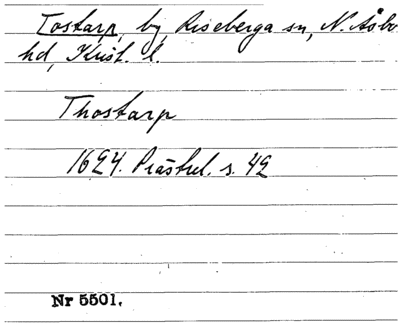 Tostarp, by, Riseberga sn, N. Åsbo
hd, Krist. l.
Thostarp
1624. Prästrel. s. 42
Nr 5501.